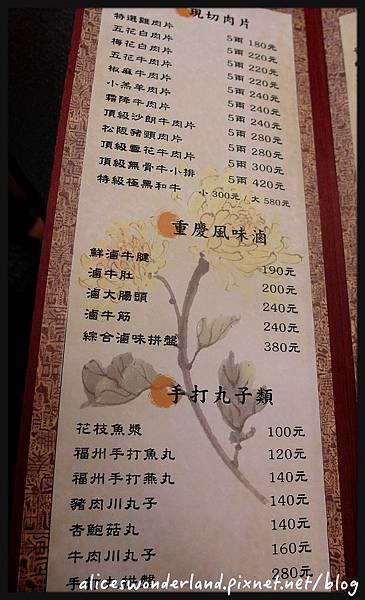 現切肉片
特選雞肉片 5兩 180元
五花白肉片 5兩 220元
梅花白肉片 5兩 220元
五花牛肉片 5兩 220元
椒麻牛肉片 5兩 240元
小羔羊肉片 5兩 240元
霜降牛肉片 5兩 240元
頂級沙朗牛肉片 5兩 280元
松阪豬頸肉片 5兩 280元
頂級雪花牛肉片 5兩 300元
頂級無骨牛小排 5兩 420元
特級極黑和牛 小300元/大580元
重慶風味滷
鮮滷牛腱 190元
滷牛肚 200元
滷大腸頭 240元
滷牛筋 240元
綜合滷味拼盤 380元
手打丸子類
花枝魚漿 100元
福州手打魚丸 120元
福州手打燕丸 140元
豬肉川丸子 140元
杏鮑菇丸 140元
牛肉川丸子 160元
280元
aliceswonderland.pixnet.net/blog